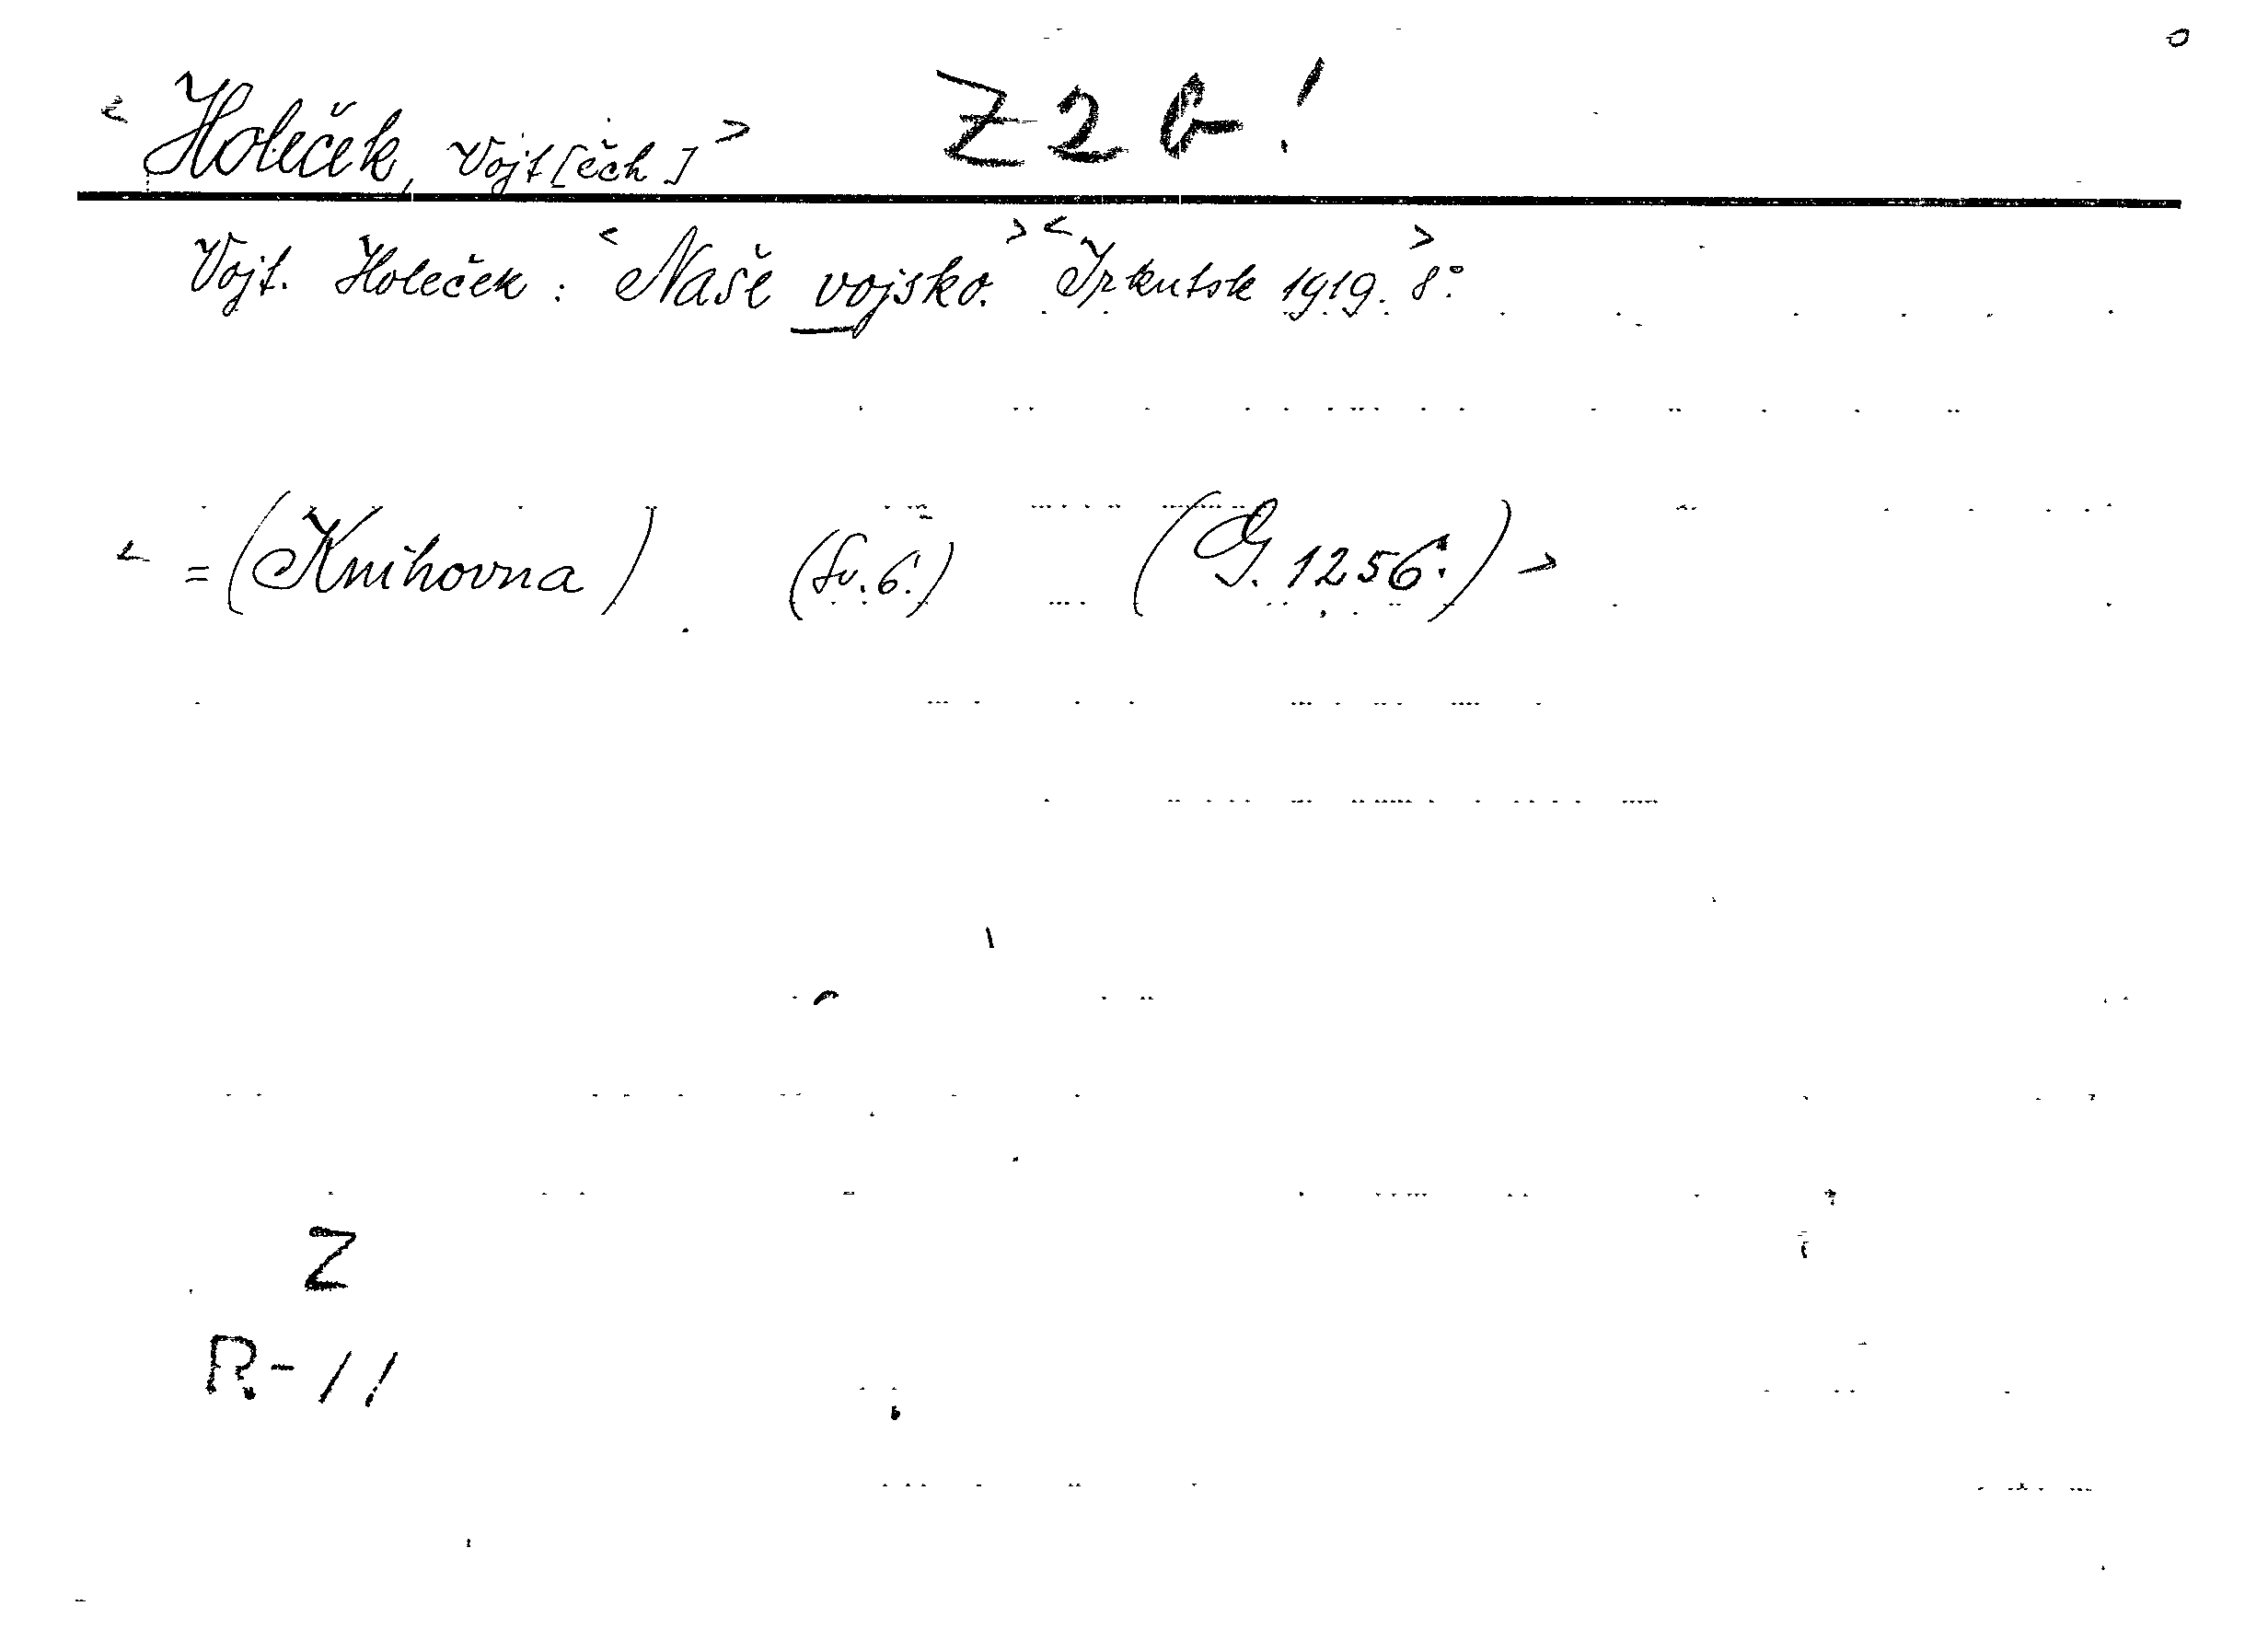 < Holeček, Vojt[ěch] > Z 2 b !
Vojt. Holeček: < Naše vojsko. > < Irkutsk 1919. > 8°.
< = (Knihovna) (Sv. 6.) (G. 1256.) >
Z
R-11